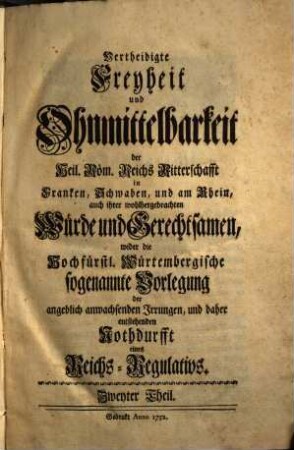 Vertheidigte
Freyheit
und
Ohnmittelbarkeit
der
Heil. Röm. Reichs Ritterschafft
in
Francken, Schwaben, und am Rhein,
auch ihrer wohlhergebrachten
Würde und Gerechtsamen,
wider die
Hochfürstl. Würtembergische
sogenannte Vorlegung
der
angeblich anwachsenden Irrungen, und daher
entstehenden
Nothdurfft
eines
Reichs-Regulativs.
Zweyter Theil.
Gedruckt Anno 1752.